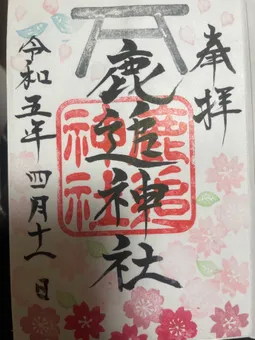 奉拝
鹿追神社
鹿追
神社
令和五年 四月十八日